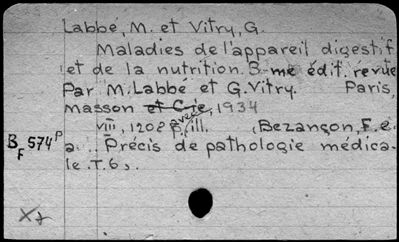 Labbé, M. et Vitry, G.
Maladies de l'appareil digestif
et de la nutrition. 3-me édit. revue
Par M. Labbé et G. Vitry. Paris,
Masson et C-ie, 1934
VIII, 1208 p. avec ill. (Bezançon, F. e.
B F 574P a. Précis de pathologie médica-
le. T. 6).